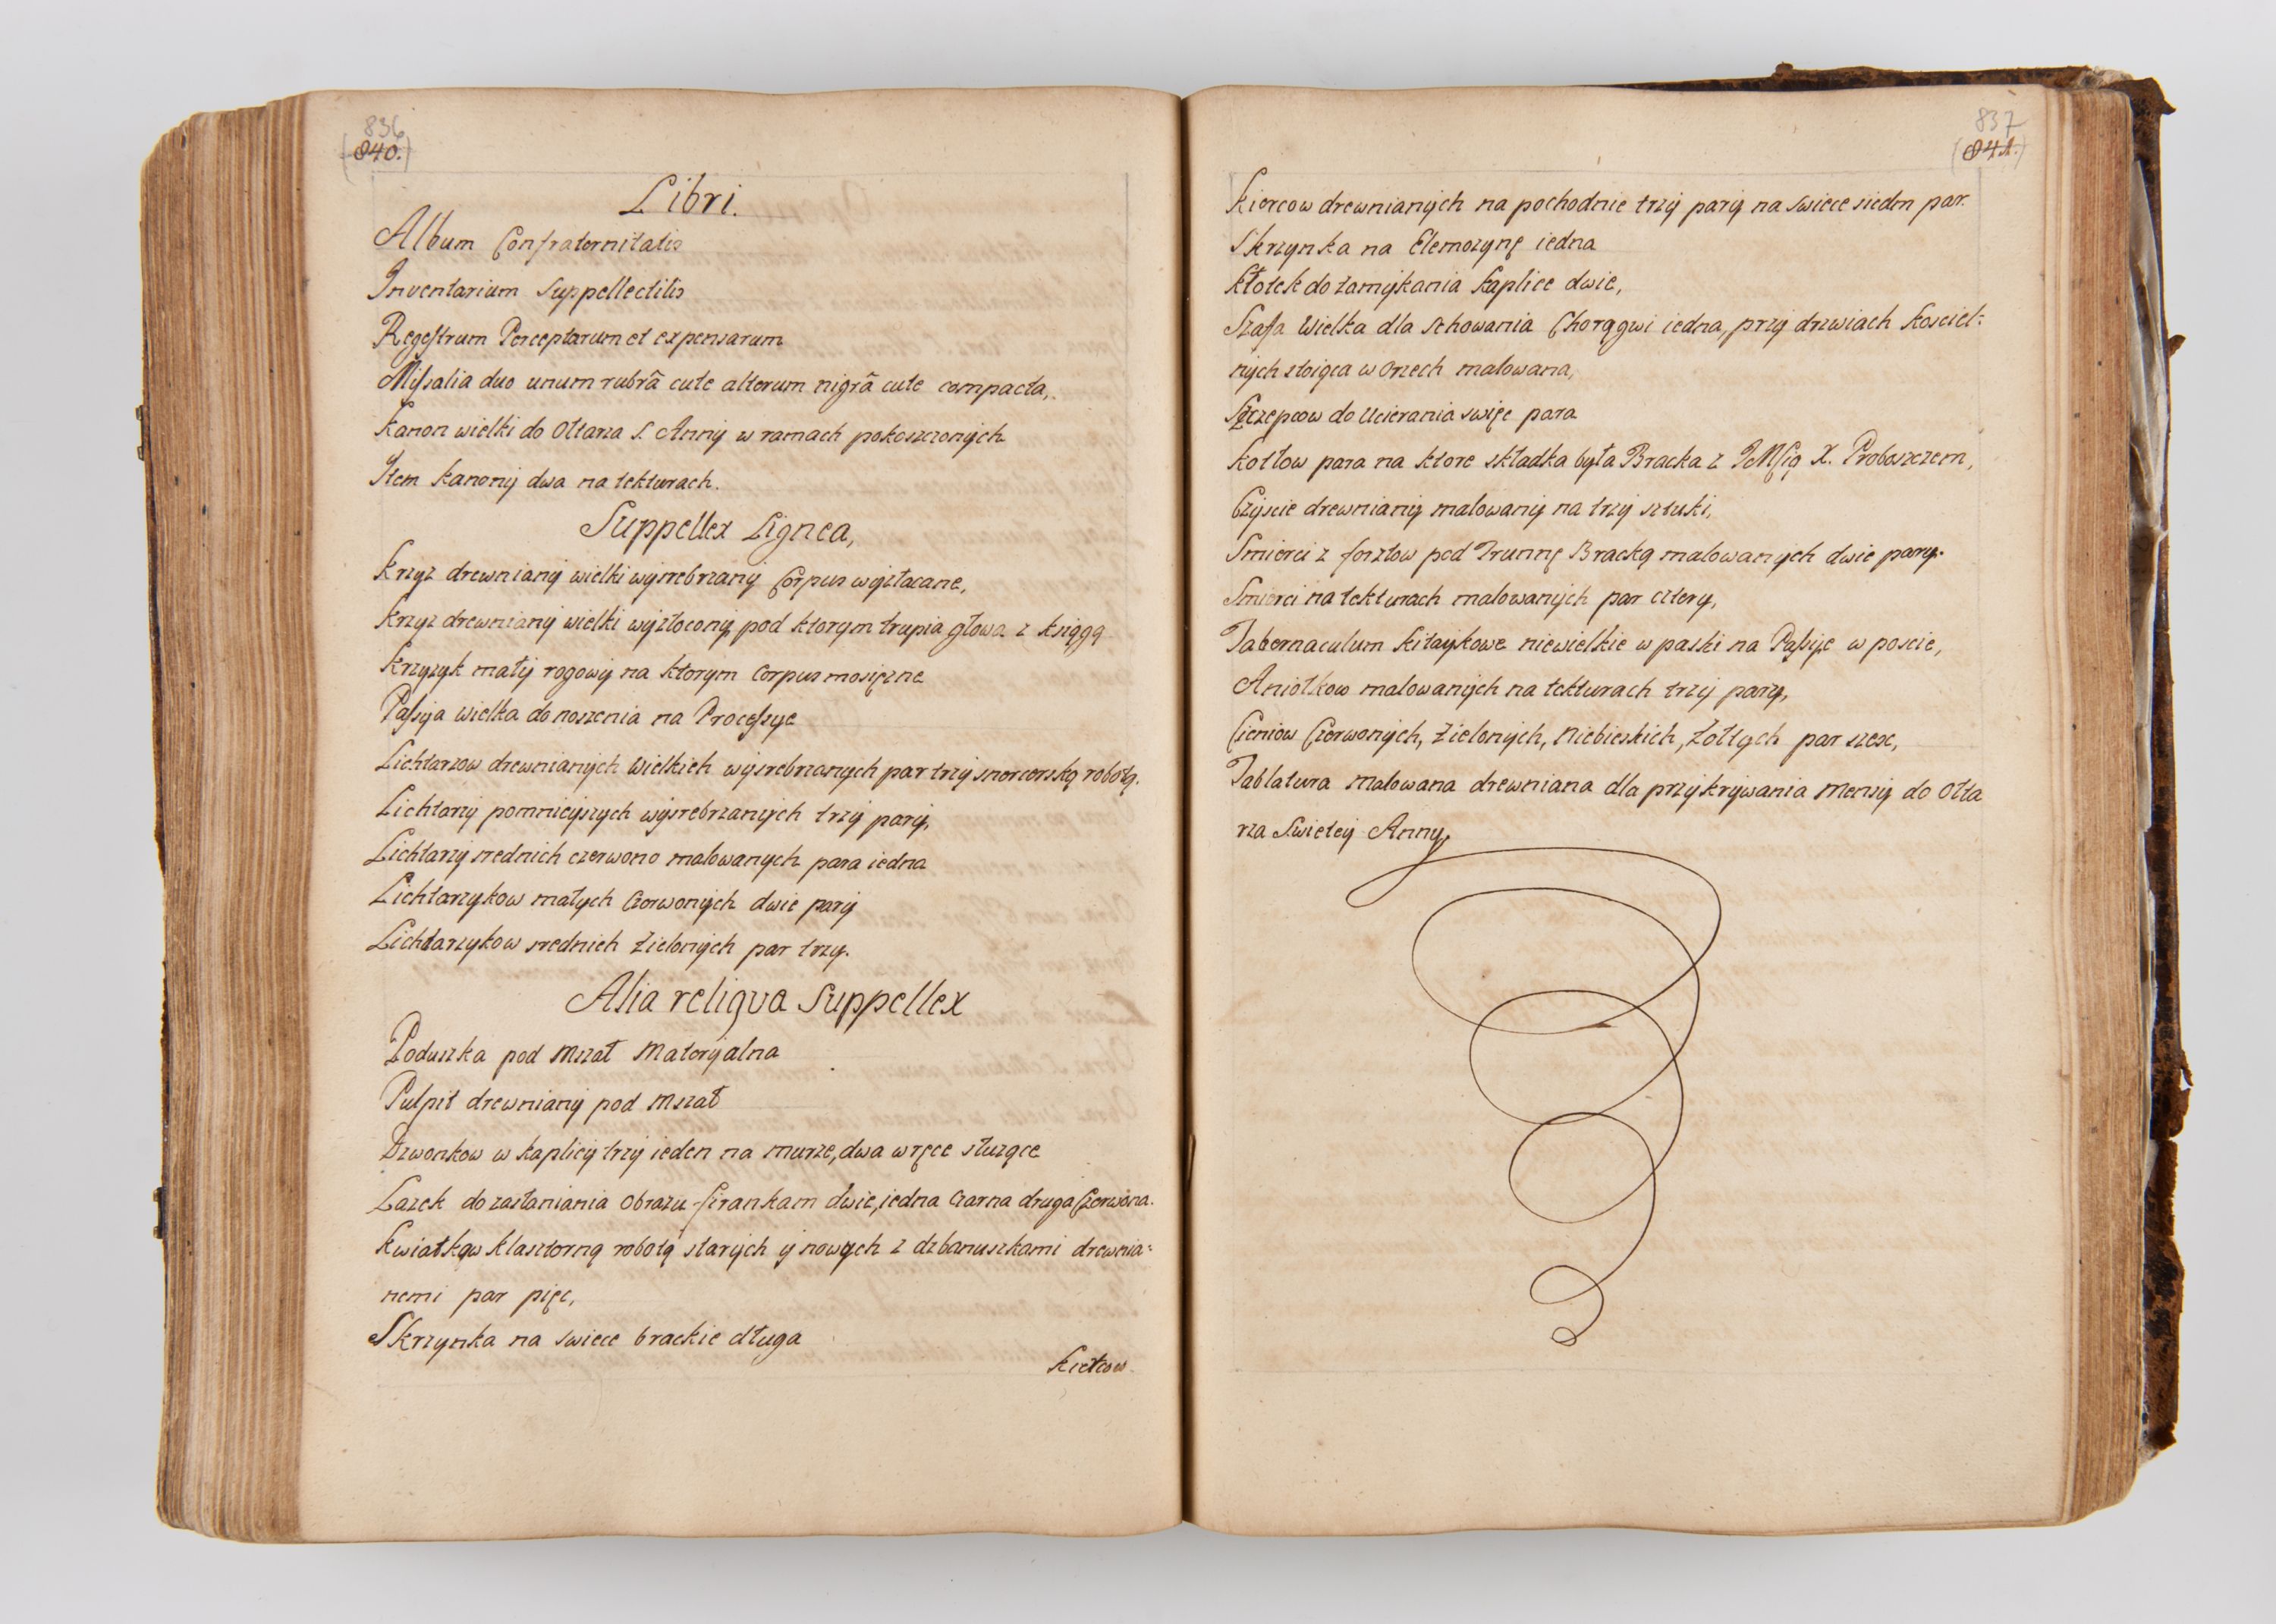 836
(840.)
Libri.
Album Confraternitatis
Inventarium Suppellectilis
Regestrum Perceptarum et expensarum
Missalia duo unum rubrã cute alterum nigrã cute compacta,
Kanon wielki do Ołtarza S. Anny w ramach pokoszczonych
Item Kanony dwa na tekturach.
Suppellex Lignea,
Krzyz drewniany wielki wysrebrzany Corpus wyzłacane,
Krzyz drewniany wielki wyzłocony pod ktorym trupia głowa z księgą
Krzyzyk mały rogowy na ktorym Corpus mosięzne
Passyja wielka do noszenia na Processye
Lichtarzow drewnianych wielkich wysrebrzanych par trzy snycerską robotą.
Lichtarzy pomnieyszych wysrebrzanych trzy pary,
Lichtarzy srednich czerwono malowanych para iedna
Lichtarzykow małych Czerwonych dwie pary
Lichtarzykow srednich zielonych par trzy.
Alia reliqva Suppellex
Poduszka pod Mszał Materyalna
Pulpit drewniany pod Mszał
Dzwonkow w kaplicy trzy ieden na murze, dwa w ręce słuzące
Lasek do zasłaniania Obrazu firankam dwie, iedna Czarna druga Czerwona.
Kwiatkow Klasztorną robotą starych y nowych z dzbanuszkami drewnia:
nemi par pięc,
Skrzynka na swiece brackie długa
837
(841.)
Kiercow drewnianych na pochodnie trzy pary na swiece siedm par.
Skrzynka na Elemozynę iedna
Kłotek do zamykania Kaplice dwie,
Szafa Wielka dla schowania Chorągwi iedna, przy drzwiach Koscieł:
nych stoiąca w Orzech malowana,
Szczepcow do Ucierania swięc para
Kotłow para na ktore składka była Bracka z JeMscią X. Proboszczem,
Czyscie drewniany malowany na trzy sztuki,
Smierci z forsztow pod Trunnę Bracką malowanych dwie pary.
Smierci na tekturach malowanych par cztery,
Tabernaculum Kitaykowe niewielkie w paski na Passye w poscie,
Aniołkow malowanych na tekturach trzy pary,
Cieniow Czerwonych, Zielonych, Niebieskich, Zołtych par szesc,
Tablatura Malowana drewniana dla przykrywania Mensy do Ołta
rza Swietey Anny,